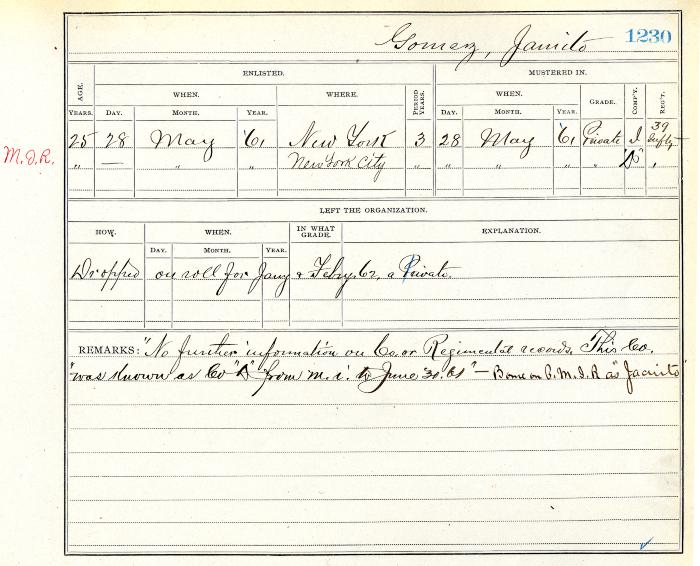 Gomez, Jamito 1230
ENLISTED. MUSTERED IN.
AGE. WHEN. WHERE. PERIOD YEARS. WHEN. GRADE. COMP'Y. REG'T.
YEARS. DAY. MONTH. YEAR. DAY. MONTH. YEAR.
25 28 May '61 New York 3 28 May '61 Private I 39 Infty
M.I.R. " — " " New York City " " " " " "D" "
LEFT THE ORGANIZATION.
HOW. WHEN. IN WHAT GRADE. EXPLANATION.
DAY. MONTH. YEAR.
Dropped on roll for Jany & Feby. 62, a Private.
REMARKS: "No further information on Co. or Regimental records. This Co.
"was known as Co "D" from m. i. to June 30. 61" — Borne on M. I. R as "Jacinto"